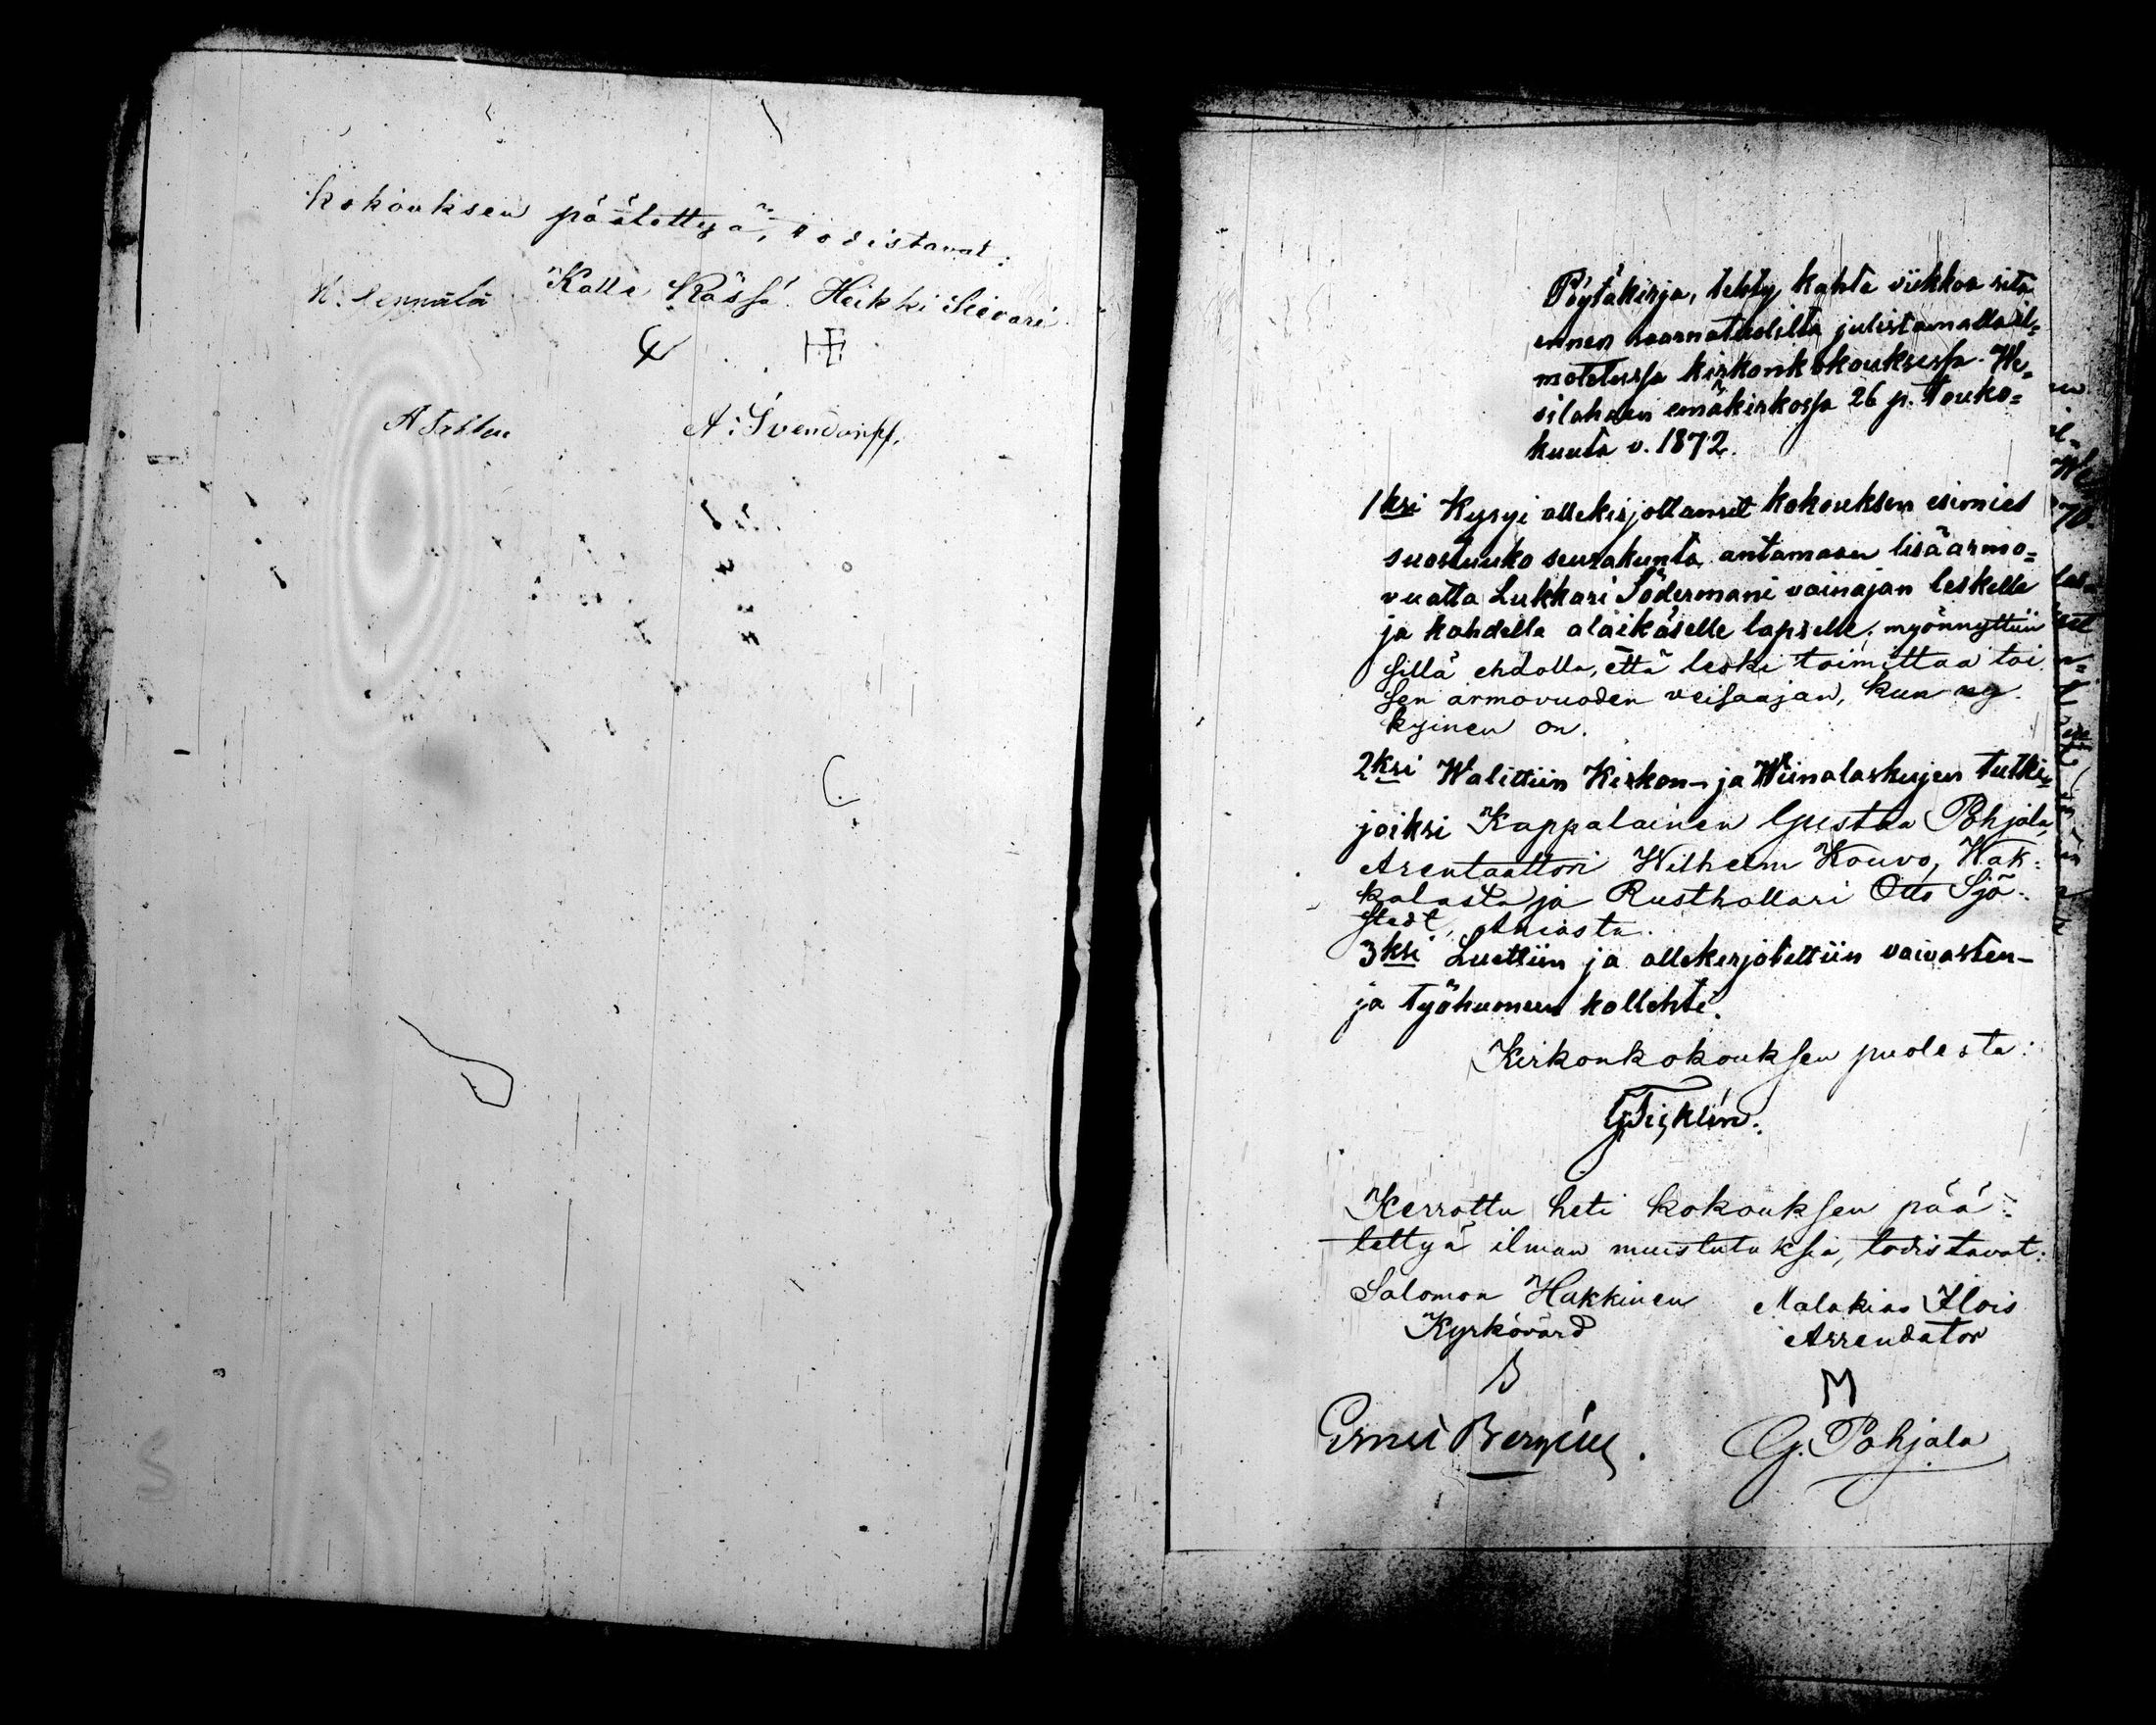 kokouksen päätettyä, todistavat:
K. Seppälä Kalle Kässä Heikki Sievari
HE
A. Svendorff.
Pöytäkirja, tehty kahta viikkoa sitä
ennen saarnatuolilta julistamalla il=
motetussa kirkonkokouksessa We=
silahden emäkirkossa 26 p. Touko=
kuuta v. 1872.
1ksi Kysyi allekirjottanut kokouksen esimies
suostuuko seurakunta antamaan lisäarmo=
vuotta Lukkari Södermani vainajan leskelle
ja kahdelle alaikäselle lapselle; myönnyttiin
sillä ehdolla, että leski toimittaa toi
sen armovuoden veisaajan, kun ny
kyinen on.
2ksi Walittiin Kirkon- ja Wiinalaskujen tutki=
joiksi Kappalainen Gustaa Pohjala,
Arentaattori Wilhelm Kouvo, Wak=
kalasta ja Rusthollari Otto Sjö=
stedt,
3ksi Luettiin ja allekirjotettiin vaivasten-
ja työhuoneen kollehti.
Kirkonkokouksen puolesta:
Kerrottu heti kokouksen pää=
tettyä ilman muistutuksia, todistavat:
Salomon Hakkinen Malakias Ilois
Kyrkovärd Arrendator
M
G. Pohjala